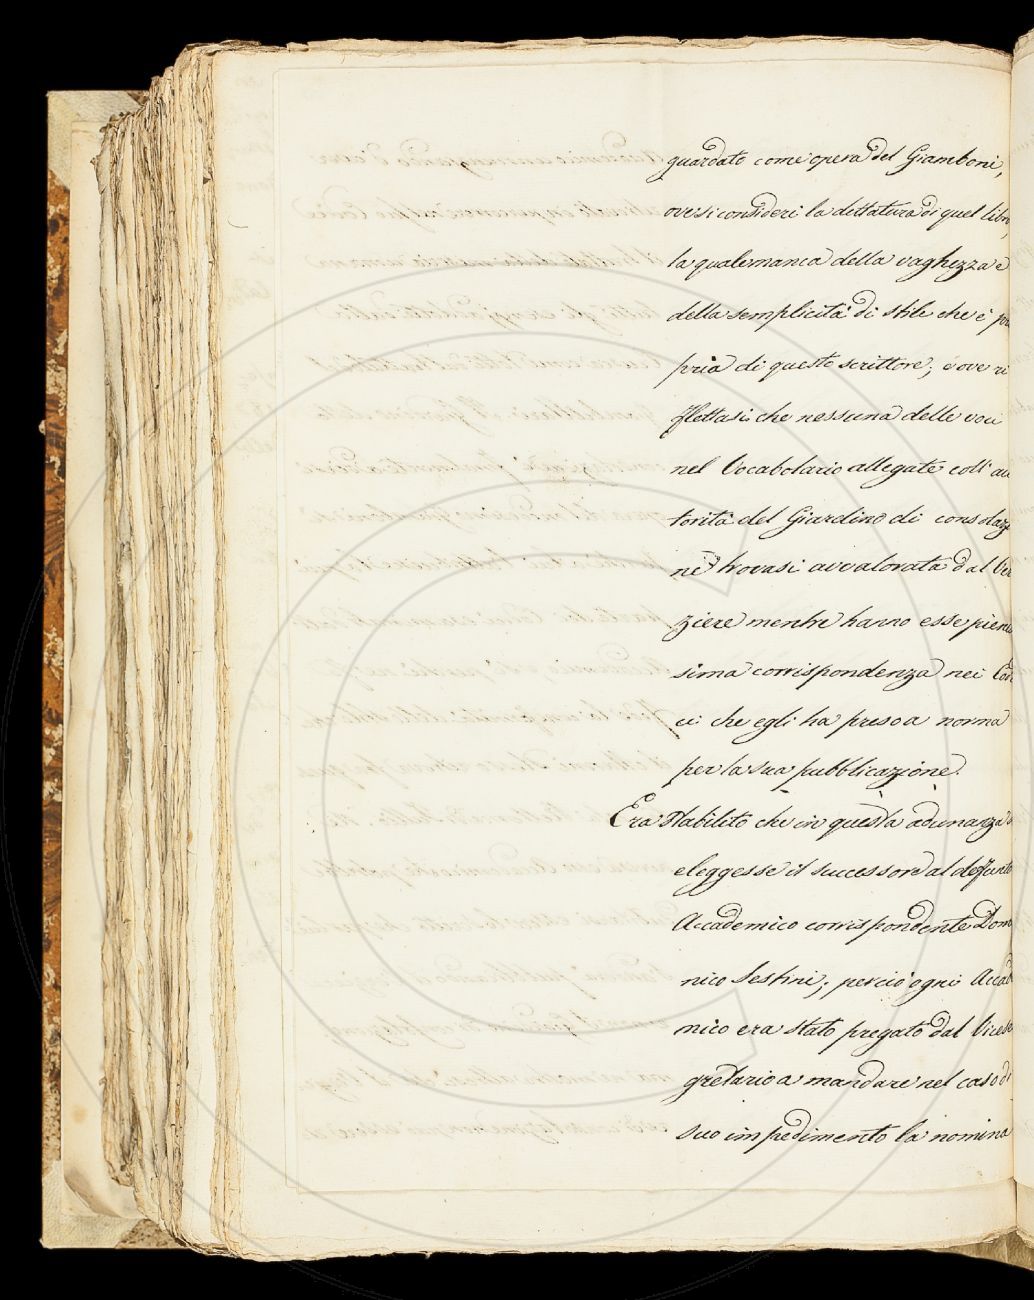 guardato come opera del Giamboni,
ove si consideri la dettatura di quel libro,
la quale manca della vaghezza e
della semplicità di stile che è pro
pria di questo scrittore; e ove ri
flettasi che nessuna delle voci
nel Vocabolario allegate coll' au
torità del Giardino di consolaz
ne trovasi avvalorata dal Ver
ziere mentre hanno esse pienis
sima corrispondenza nei Cod
ci che egli ha preso a norma
per la sua pubblicazione.
Era stabilito che in questa adunanza si
eleggesse il successore al defunto
Accademico corrispondente Dome
nico Sestini; perciò ogni Accade
nico era stato pregato dal Vicese
gretario a mandare nel caso di
suo impedimento la nomina